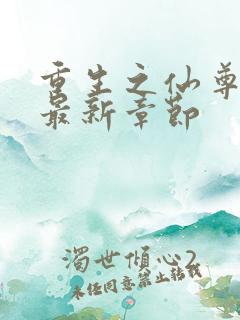 重生之仙尊
最新章節
濁世傾心2
未经同意禁止转载